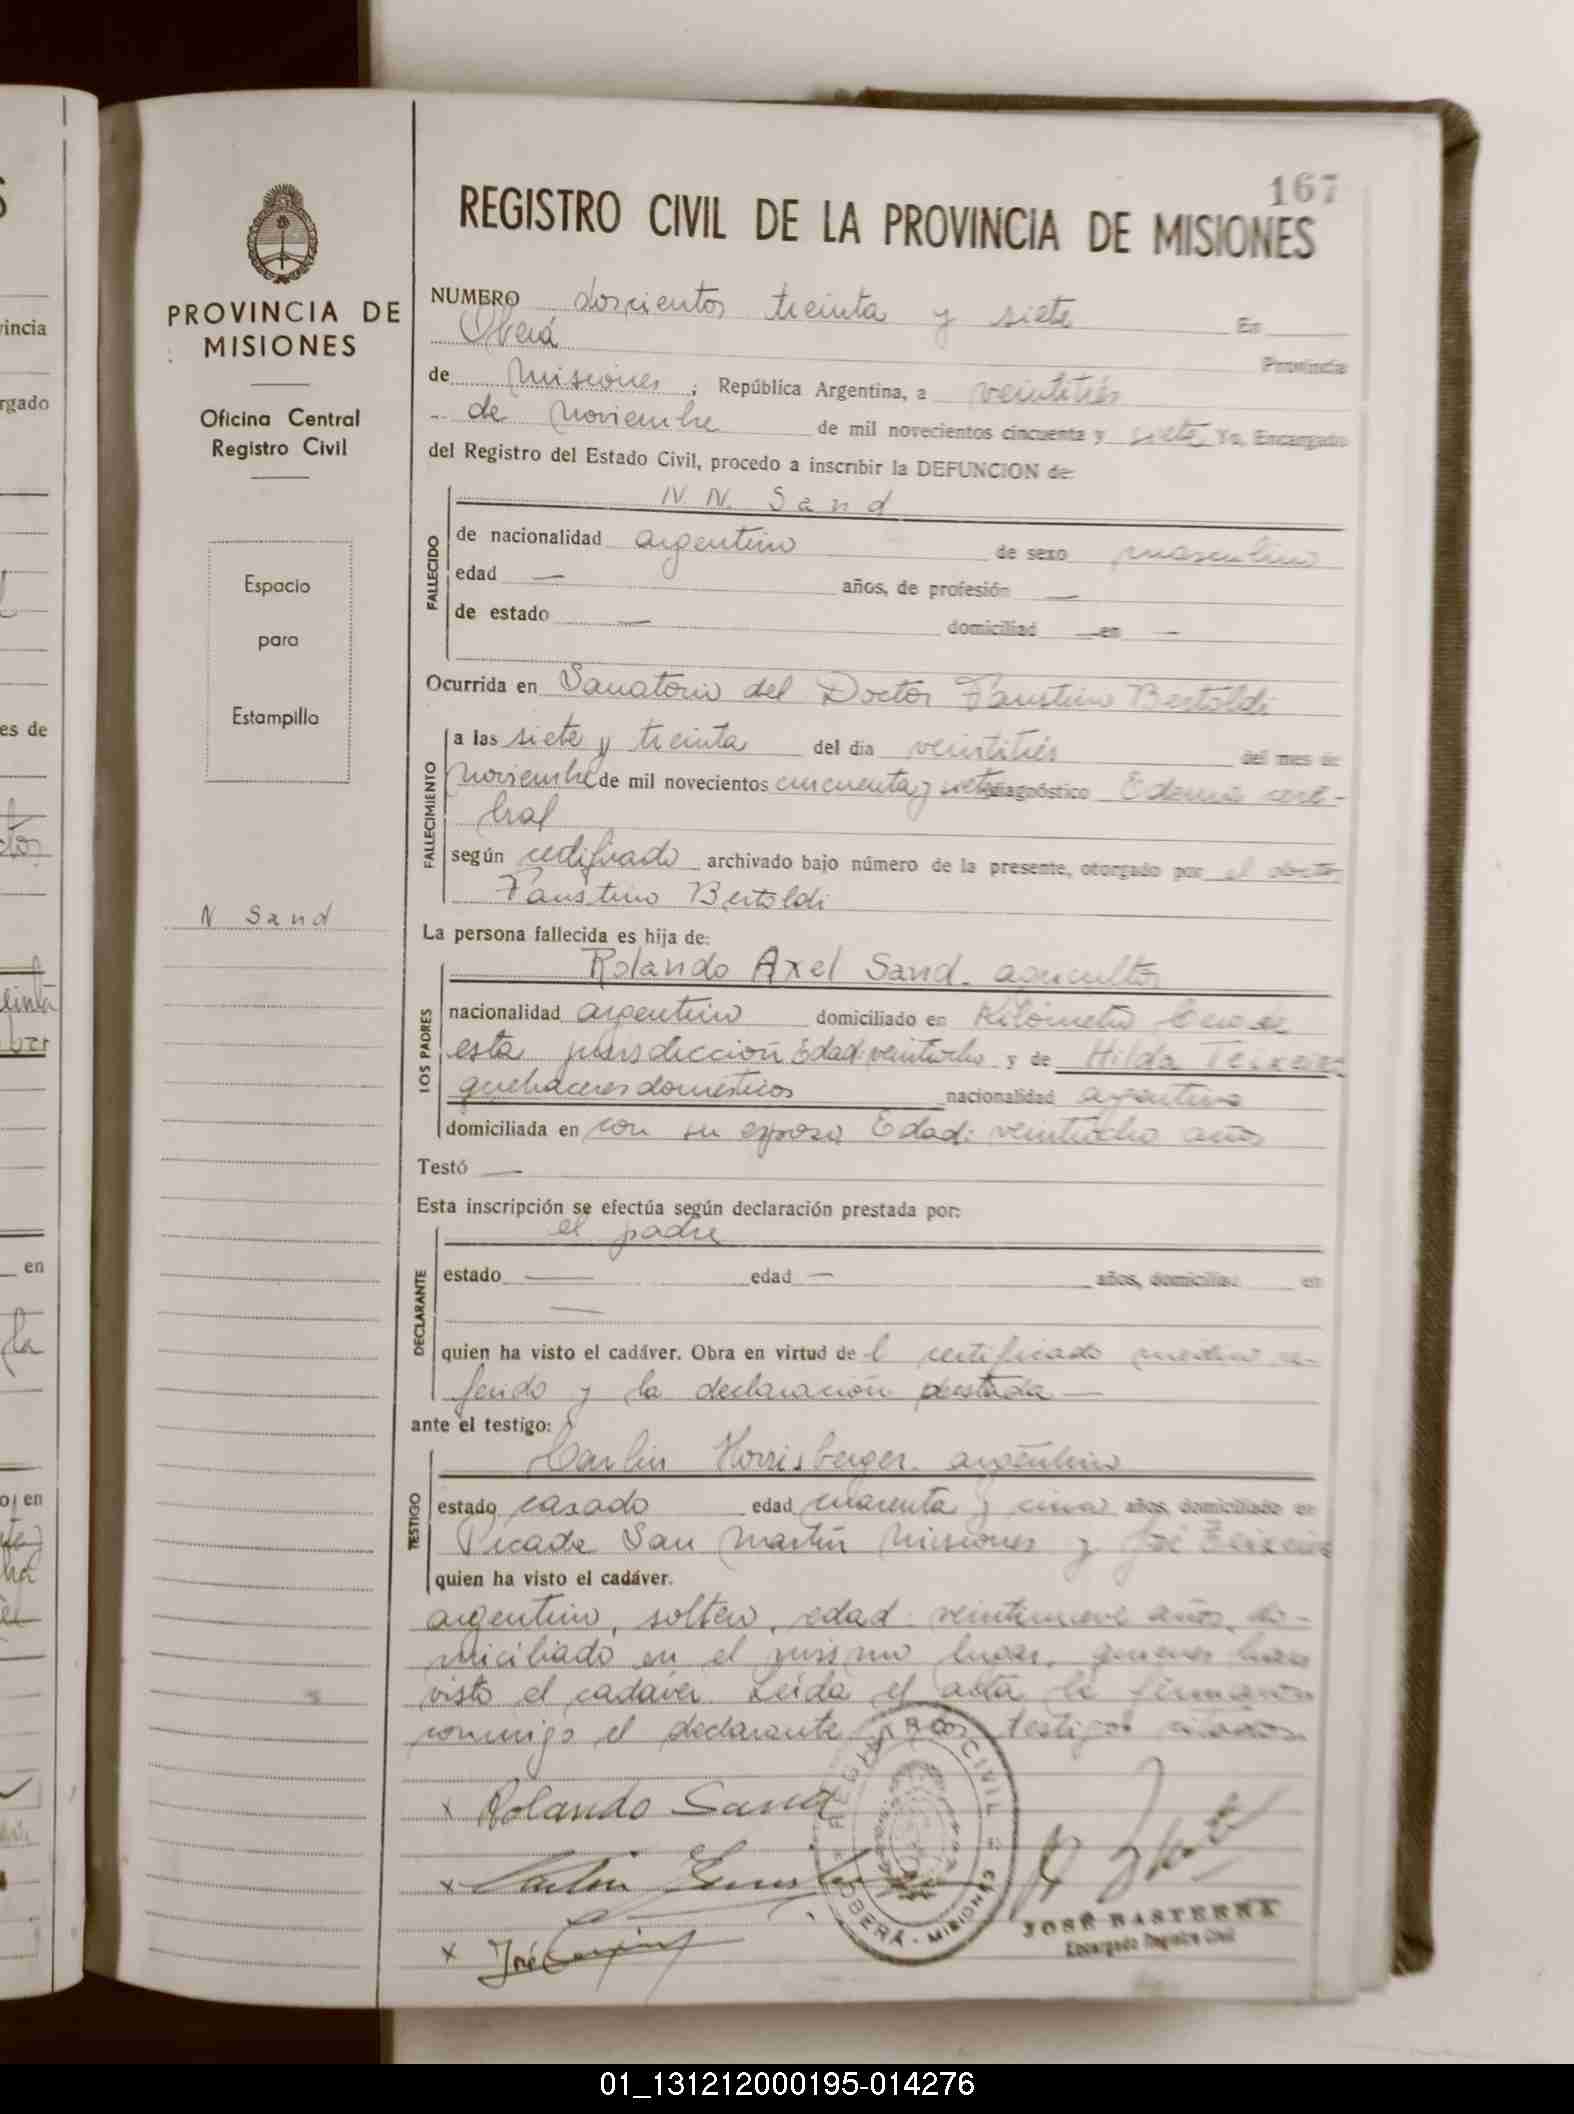 167
REGISTRO CIVIL DE LA PROVINCIA DE MISIONES
PROVINCIA DE
MISIONES
Oficina Central
Registro Civil
Espacio
para
Estampilla
N Sand
NUMERO doscientos treinta y siete En
Oberá Provincia
de Misiones, República Argentina, a veintitrés
de Noviembre de mil novecientos cincuenta y siete Yo, Encargado
del Registro del Estado Civil, procedo a inscribir la DEFUNCION de:
N. N. Sand
FALLECIDO
de nacionalidad argentino de sexo masculino
edad — años, de profesión —
de estado — domiciliad — en —
Ocurrida en Sanatorio del Doctor Faustino Bertoldi
FALLECIMIENTO
a las siete y treinta del día veintitrés del mes de
Noviembre de mil novecientos cincuenta y siete diagnóstico Edema cere-
bral
según certificado archivado bajo número de la presente, otorgado por el doctor
Faustino Bertoldi
La persona fallecida es hija de:
LOS PADRES
Rolando Axel Sand. agricultor
nacionalidad argentino domiciliado en Kilómetro
esta jurisdicción Edad: veintiocho y de Hilda Teixeira
quehaceres domésticos nacionalidad argentina
domiciliada en con su esposo Edad: veintiocho años
Testó —
Esta inscripción se efectúa según declaración prestada por:
DECLARANTE
el padre
estado — edad — años, domiciliad en
—
quien ha visto el cadáver. Obra en virtud del certificado medico re-
ferido y la declaración prestada —
ante el testigo:
TESTIGO
Carlin Horrisberger. argentino
estado casado edad cuarenta y cinco años, domiciliado en
Picada San Martín Misiones y José Teixeira
quien ha visto el cadáver.
argentino, soltero, edad: veintinueve años, do-
miciliado en el mismo lugar, quienes han
visto el cadáver. Leida el acta la firmaron
conmigo el declarante testigos citados.
x Rolando Sand
x
x José
REGISTRO CIVIL
OBERÁ - MISIONES
JOSÉ BASTERRA
Encargado Registro Civil
vincia
rgado
es de
en
en
01_131212000195-014276